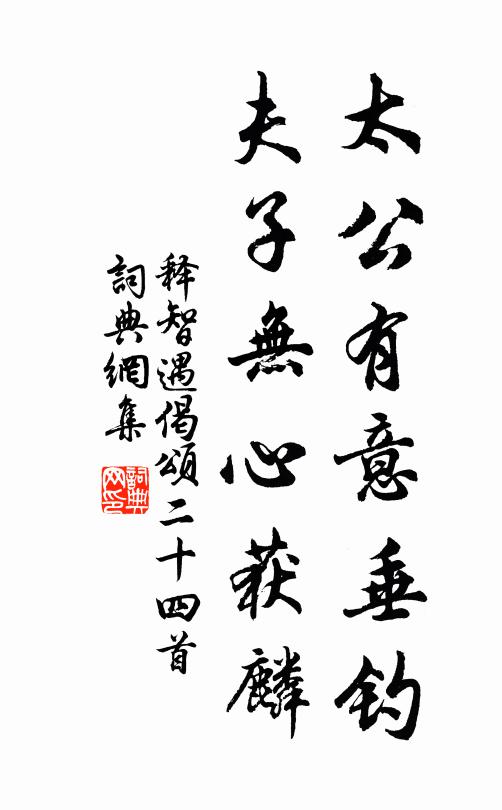 太公有意垂钓
夫子無心获麟
释智遇偈頌二十四首
詞典網集
詞典网印